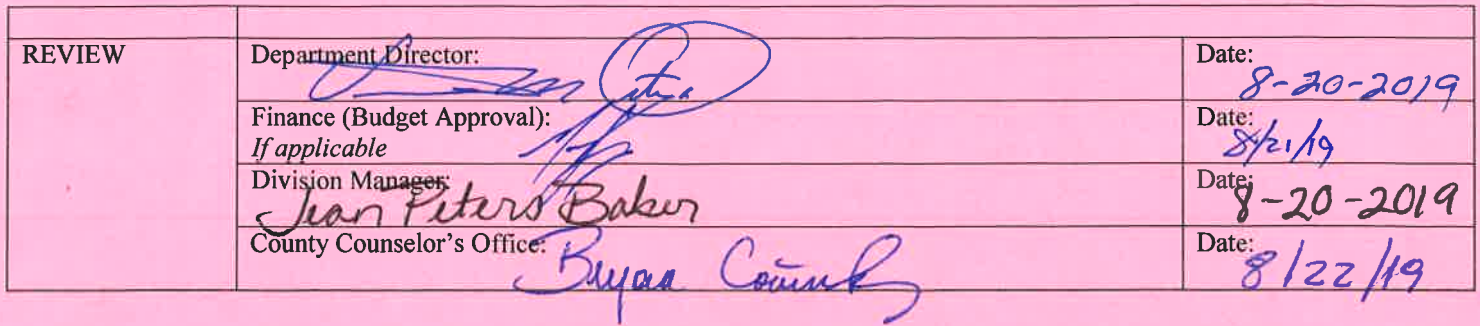 REVIEW
Department Director:
Date:
8-20-2019
Finance (Budget Approval):
If applicable
Date:
8/21/19
Division Manager:
Jean Peters Baker
Date:
8-20-2019
County Counselor's Office:
Bryan
Date:
8/22/19